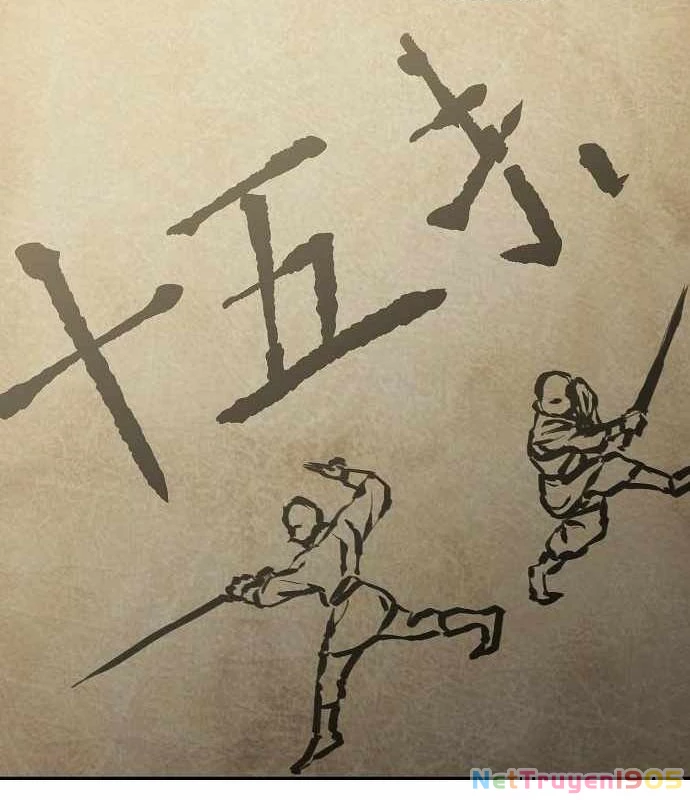 十五
NetTruyen1905